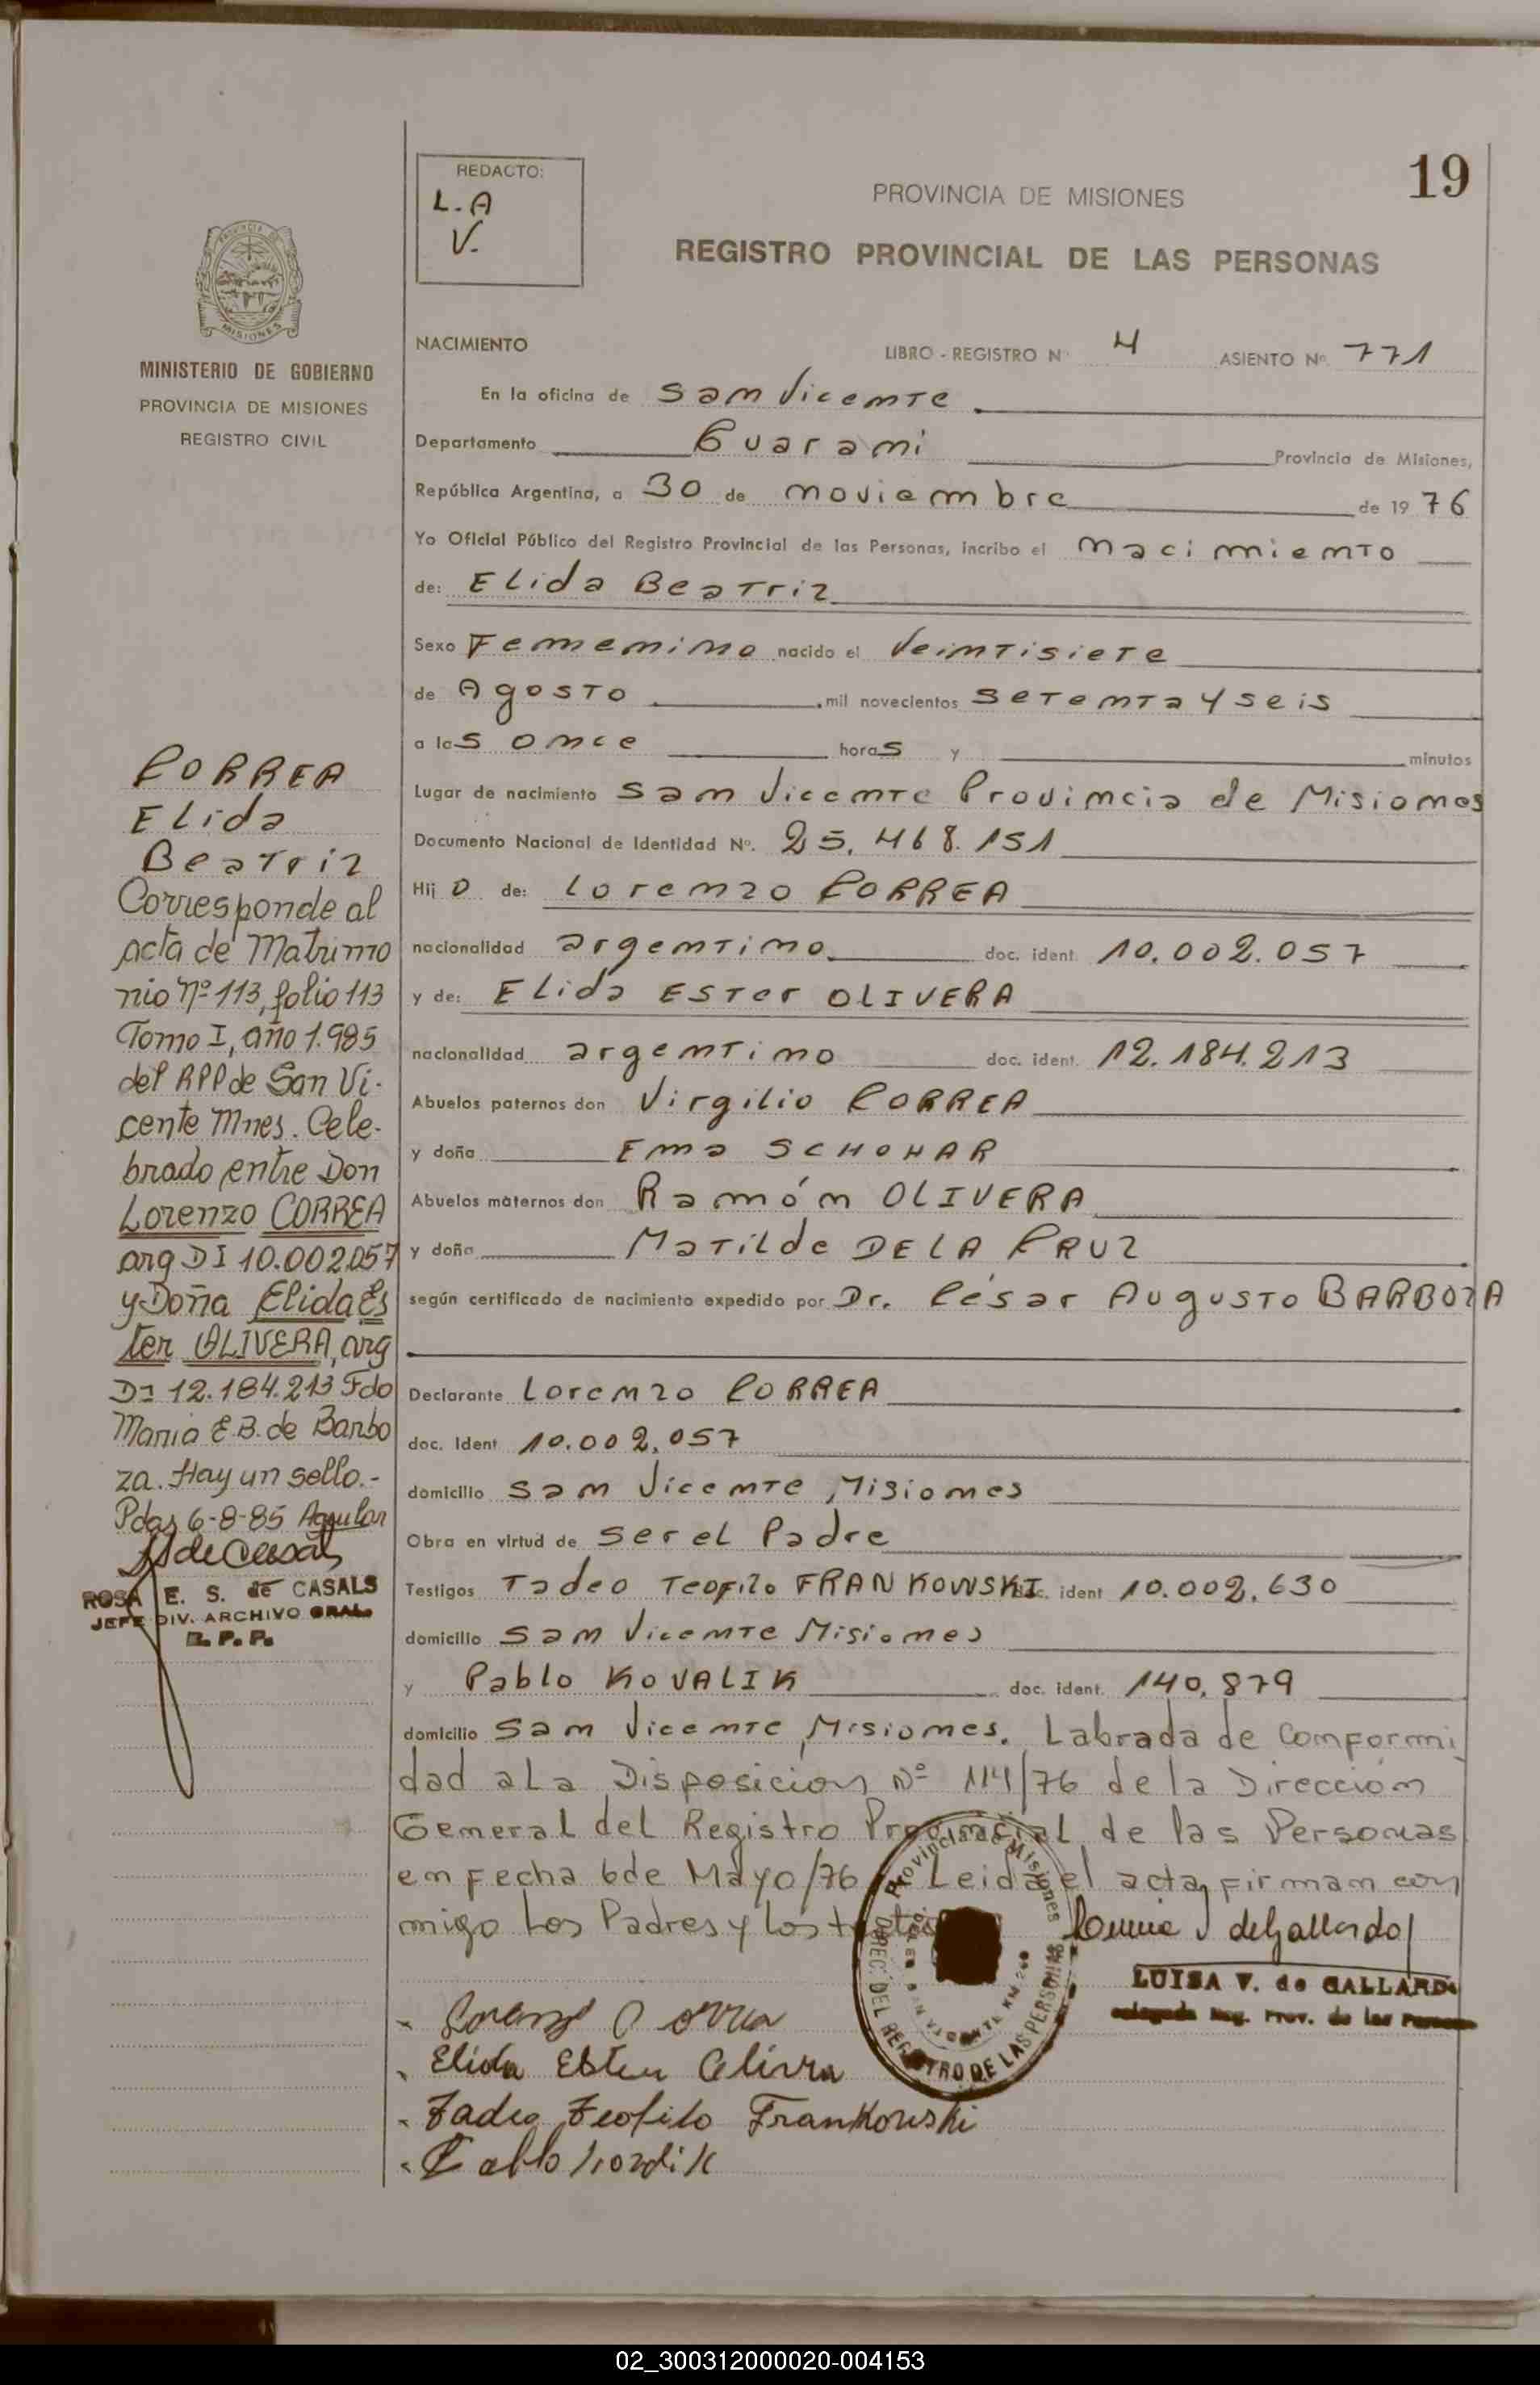 19
REDACTO:
L.A
V.
PROVINCIA DE MISIONES
REGISTRO PROVINCIAL DE LAS PERSONAS
MINISTERIO DE GOBIERNO
PROVINCIA DE MISIONES
REGISTRO CIVIL
NACIMIENTO LIBRO - REGISTRO Nº 4 ASIENTO Nº 771
En la oficina de San Vicente
Departamento Guarani Provincia de Misiones,
República Argentina, a 30 de noviembre de 1976
Yo Oficial Público del Registro Provincial de las Personas, incribo el nacimiento
de: Elida Beatriz
Sexo Femenino nacido el Veintisiete
de Agosto mil novecientos setenta y seis
a las once horas y minutos
Lugar de nacimiento San Vicente Provincia de Misiones
Documento Nacional de Identidad Nº. 25.468.151
Hijo de: Lorenzo CORREA
nacionalidad argentino doc. ident. 10.002.057
y de: Elida Ester OLIVERA
nacionalidad argentino doc. ident. 12.184.213
Abuelos paternos don Virgilio CORREA
y doña Ema SCHOHAR
Abuelos maternos don Ramón OLIVERA
y doña Matilde DE LA CRUZ
según certificado de nacimiento expedido por Dr. César Augusto BARBOZA
Declarante Lorenzo CORREA
doc. Ident 10.002.057
domicilio San Vicente, Misiones
Obra en virtud de ser el Padre
Testigos Tadeo Teofilo FRANKOWSKI doc. ident 10.002.630
domicilio San Vicente Misiones
y Pablo KOVALIK doc. ident. 140.879
domicilio San Vicente, Misiones. Labrada de Conformi
dad a la Disposicion Nº 114/76 de la Dirección
General del Registro Provincial de las Personas
en Fecha 6 de Mayo/76 Leida el acta firman con
migo Los Padres y Los testigos
Lorenzo Correa
Elida Ester Olivera
Tadeo Teofilo Frankowski
Pablo Kovalik
de Gallardo
LUISA V. de GALLARDO
Delegada Reg. Prov. de las Personas
Provincia de Misiones
DIREC. DEL REGISTRO DE LAS PERSONAS
SAN VICENTE KM.
CORREA
Elida
Beatriz
Corresponde al
acta de Matrimo
nio Nº 113, folio 113
Tomo I, año 1.985
del RPP de San Vi-
cente Mnes. Cele-
brado entre Don
Lorenzo CORREA
arg DI 10.002.057
y Doña Elida Es
ter OLIVERA, arg
DI 12.184.213 Fdo
Maria E.B. de Barbo
za. Hay un sello.-
Pdas 6-8-85 Aguilar
ROSA E. S. de CASALS
JEFE DIV. ARCHIVO GRAL.
R. P. P.
02_300312000020-004153